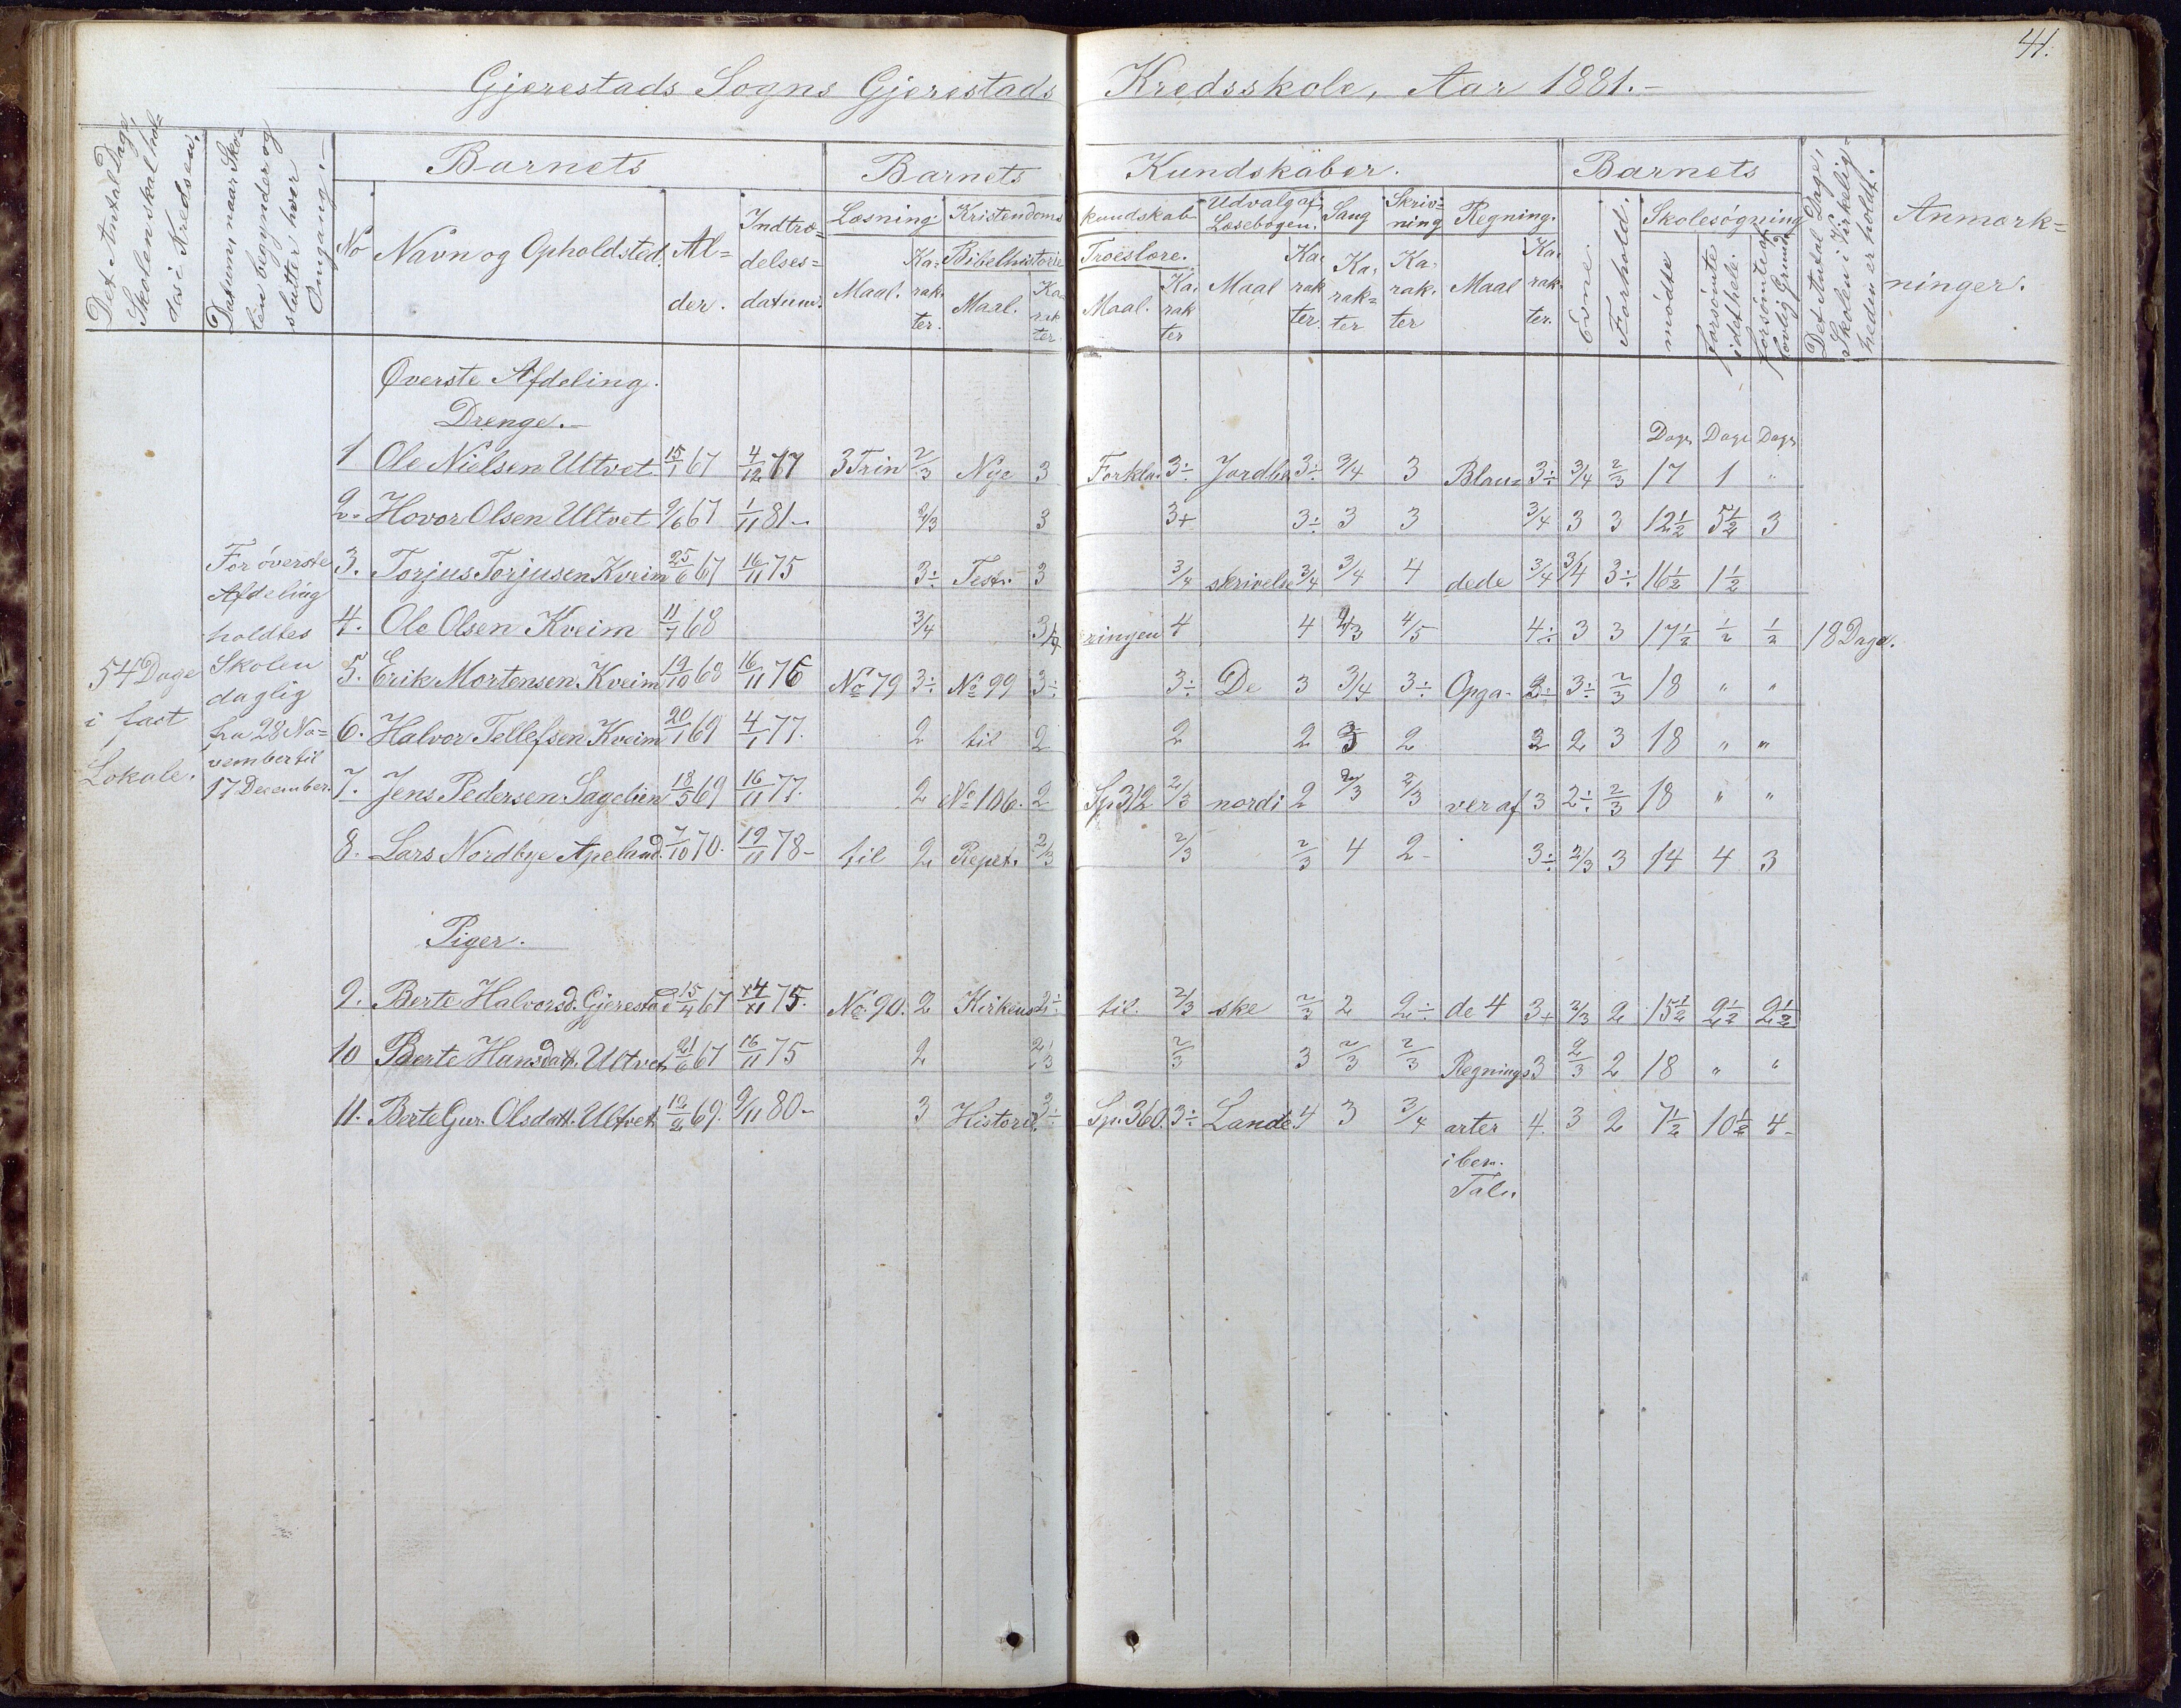 41.
Gjerestads Sogns Gjerestads Kredsskole, Aar 1881.-
Det Antal Dage, Skolen skal holdes i Kredsen.
Datum, naar Skolen begynder og slutter hver Omgang.-
Barnets
Barnets Kundskaber.
Barnets
Det Antal Dage, Skolen i Virkeligheden er holdt.
Anmærkninger.
No
Navn og Opholdsted.
Alder.
Indtrædelsesdatum.
Læsning.
Kristendomskundskab
Udvalg af Læsebogen.
Sang
Skrivning
Regning.
Evne.
Forhold.
Skolesøgning
Bibelhistorie
Troeslære.
Maal. Karakter. Maal. Karakter. Maal. Karakter Maal Karakter. Karakter Karakter Maal Karakter.
mødte
forsømte i det Hele.
forsømte af lovlig Grund
Øverste Afdeling.
Drenge.-
Dage Dage Dage
1 Ole Nielsen Ultvet. 15/1 67 4/12 77 3 Trin 2/3 Nye 3 Forkla- 3÷ Jordbe 3÷ 3/4 3 Blan= 3÷ 3/4 2/3 17 1 "
2. Hovor Olsen Ultvet 9/6 67 1/11 81- 2/3 3 3+ 3÷ 3 3 3/4 3 3 12½ 5½ 3
3. Torjus Torjusen Kveim 25/6 67 16/11 75 3÷ Test. 3 3/4 skrivelse 3/4 3/4 4 dede 3/4 3/4 3÷ 16½ 1½
4. Ole Olsen Kveim 11/7 68 3/4 3/4 ringen 4 4 2/3 4/5 4÷ 3 3 17½ ½ ½ 18 Dage.
5. Erik Mortensen Kveim 19/10 68 16/11 76 No 79 3÷ No 99 3÷ 3÷ De 3 3/4 3÷ Opga- 3÷ 3÷ 2/3 18 " "
6. Halvor Tellefsen Kveim 20/1 69 4/1 77. 2 til 2 2 2 3 2 3 2 3 18 " "
7. Jens Pedersen Sagelien 18/5 69 16/11 77. 2 No 106. 2 Sp. 312 2/3 nordi 2 2/3 2/3 ver af 3 2÷ 2/3 18 " "
8. Lars Nordbye Apeland. 7/10 70. 19/11 78- til 2 Repet. 2/3 2/3 2/3 4 2- 3÷ 2/3 3 14 4 3
For øverste
Afdeling
holdtes
Skolen
daglig
fra 28 No=
vember til
17 December.
54 Dage
i fast
Lokale.
Piger.
9. Berte Halvorsd. Gjerestad 15/4 67 14/11 75. No. 90. 2 Kirkens 2÷ til. 2/3 ske 2/3 2 2÷ de 4 3+ 2/3 2 15½ 2½ 2½
10 Berte Hansdatt. Ultvet 21/6 67 16/11 75 2 2/3 2/3 3 2/3 2/3 Regnings 3 2/3 2 18 " "
11. Berte Gur. Olsdatt. Ultvet 12/2 69. 9/11 80- 3 Historie. 3÷ Sp. 360. 3÷ Lande 4 3 3/4 arter 4. 3 2 7½ 10½ 4-
i ben.
Tal.